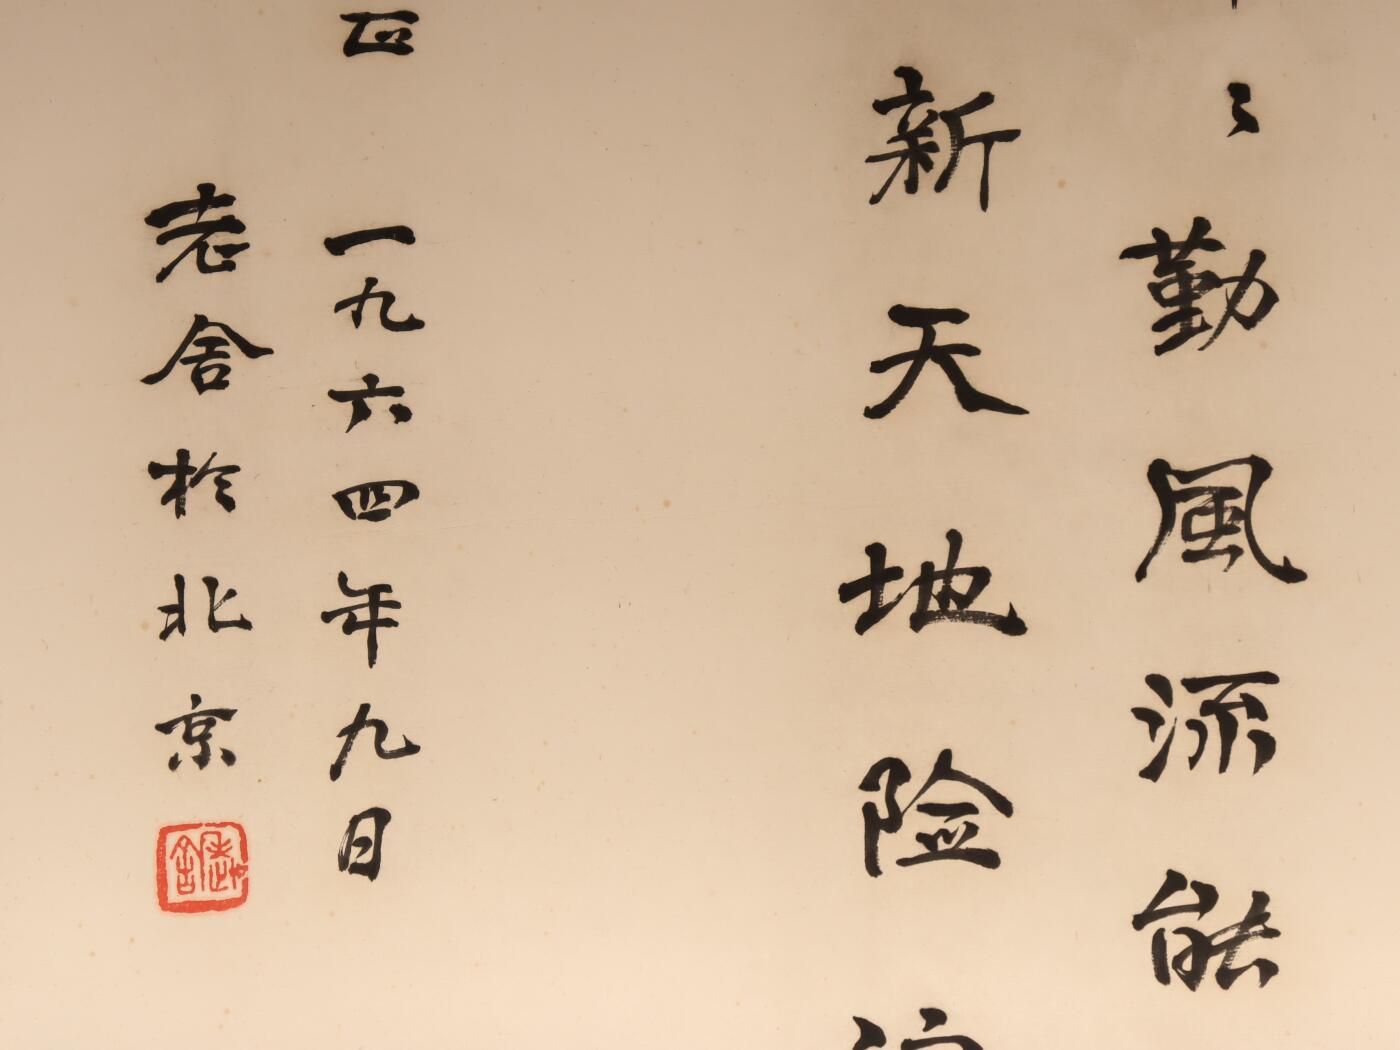 々勤風流能
新天地险
正 一九六四年九日
老舍於北京
老舍